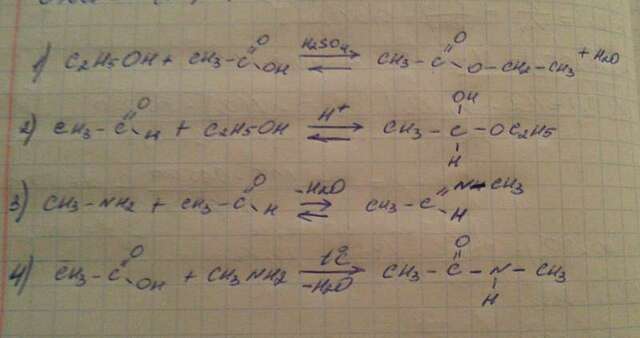 1) C2H5OH + CH3-C(=O)OH ⇌ (H2SO4) CH3-C(=O)O-CH2-CH3 + H2O
2) CH3-C(=O)H + C2H5OH ⇌ (H+) CH3-C(OH)(H)-OC2H5
3) CH3-NH2 + CH3-C(=O)H ⇌ (-H2O) CH3-C(=N-CH3)H
4) CH3-C(=O)OH + CH3NH2 → (t°C, -H2O) CH3-C(=O)-N(H)-CH3